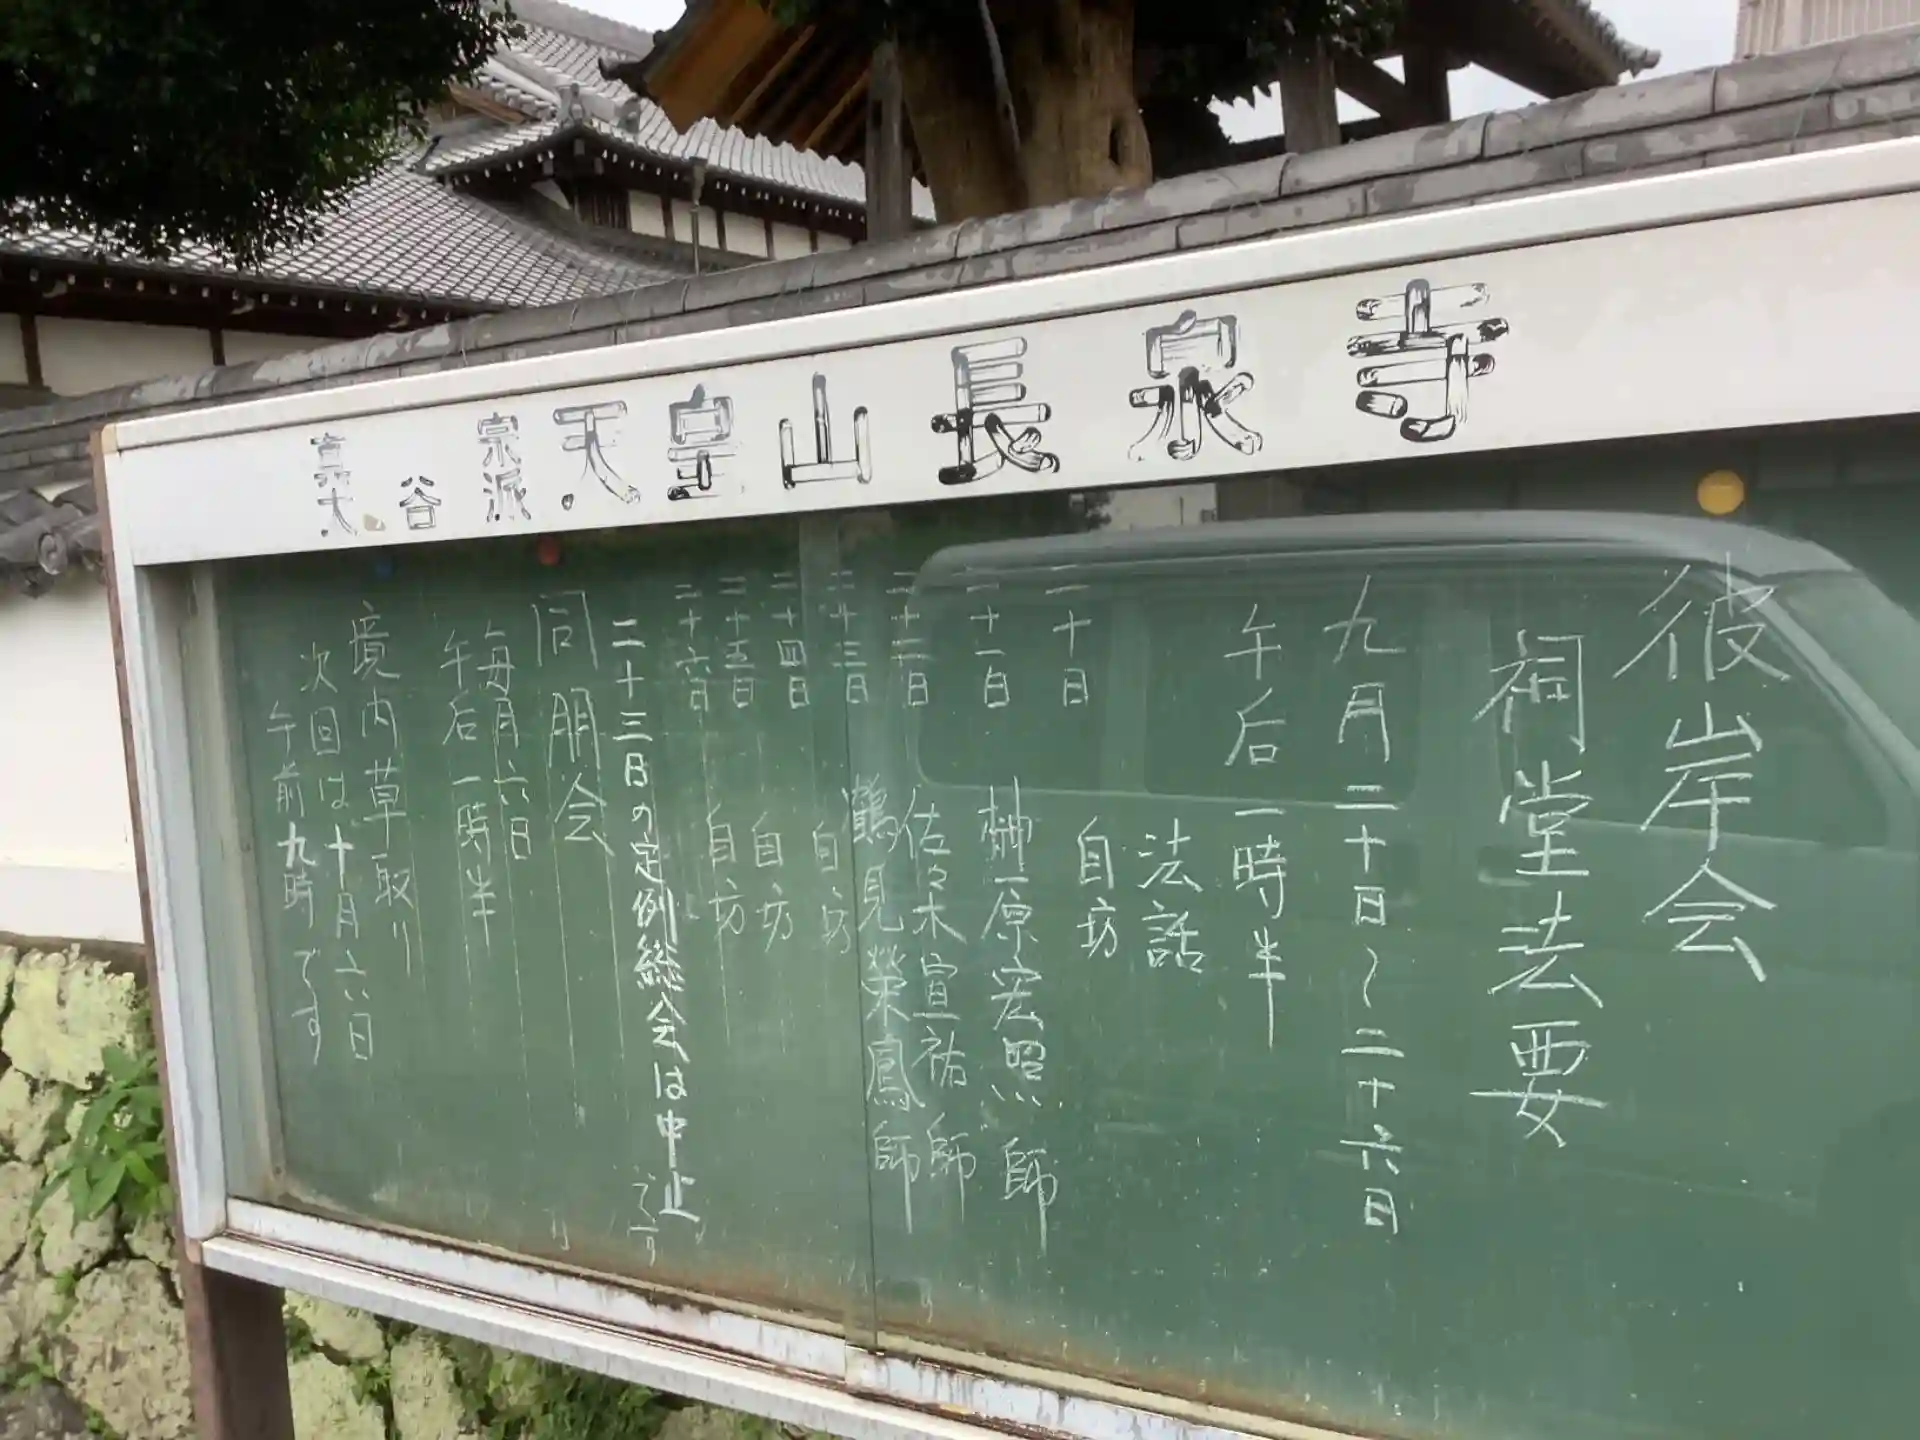 真宗
大谷派
天皇山長泉寺
彼岸会
祠堂法要
九月二十日～二十六日
午后一時半
法話
二十日 自坊
二十一日 榊原宏照師
二十二日 佐々木宣祐師
二十三日 鶴見榮鳳師
二十四日 自坊
二十五日 自坊
二十六日 自坊
二十三日の定例総会は中止です
同朋会
毎月六日
午后一時半
境内草取り
次回は十月六日
午前九時です